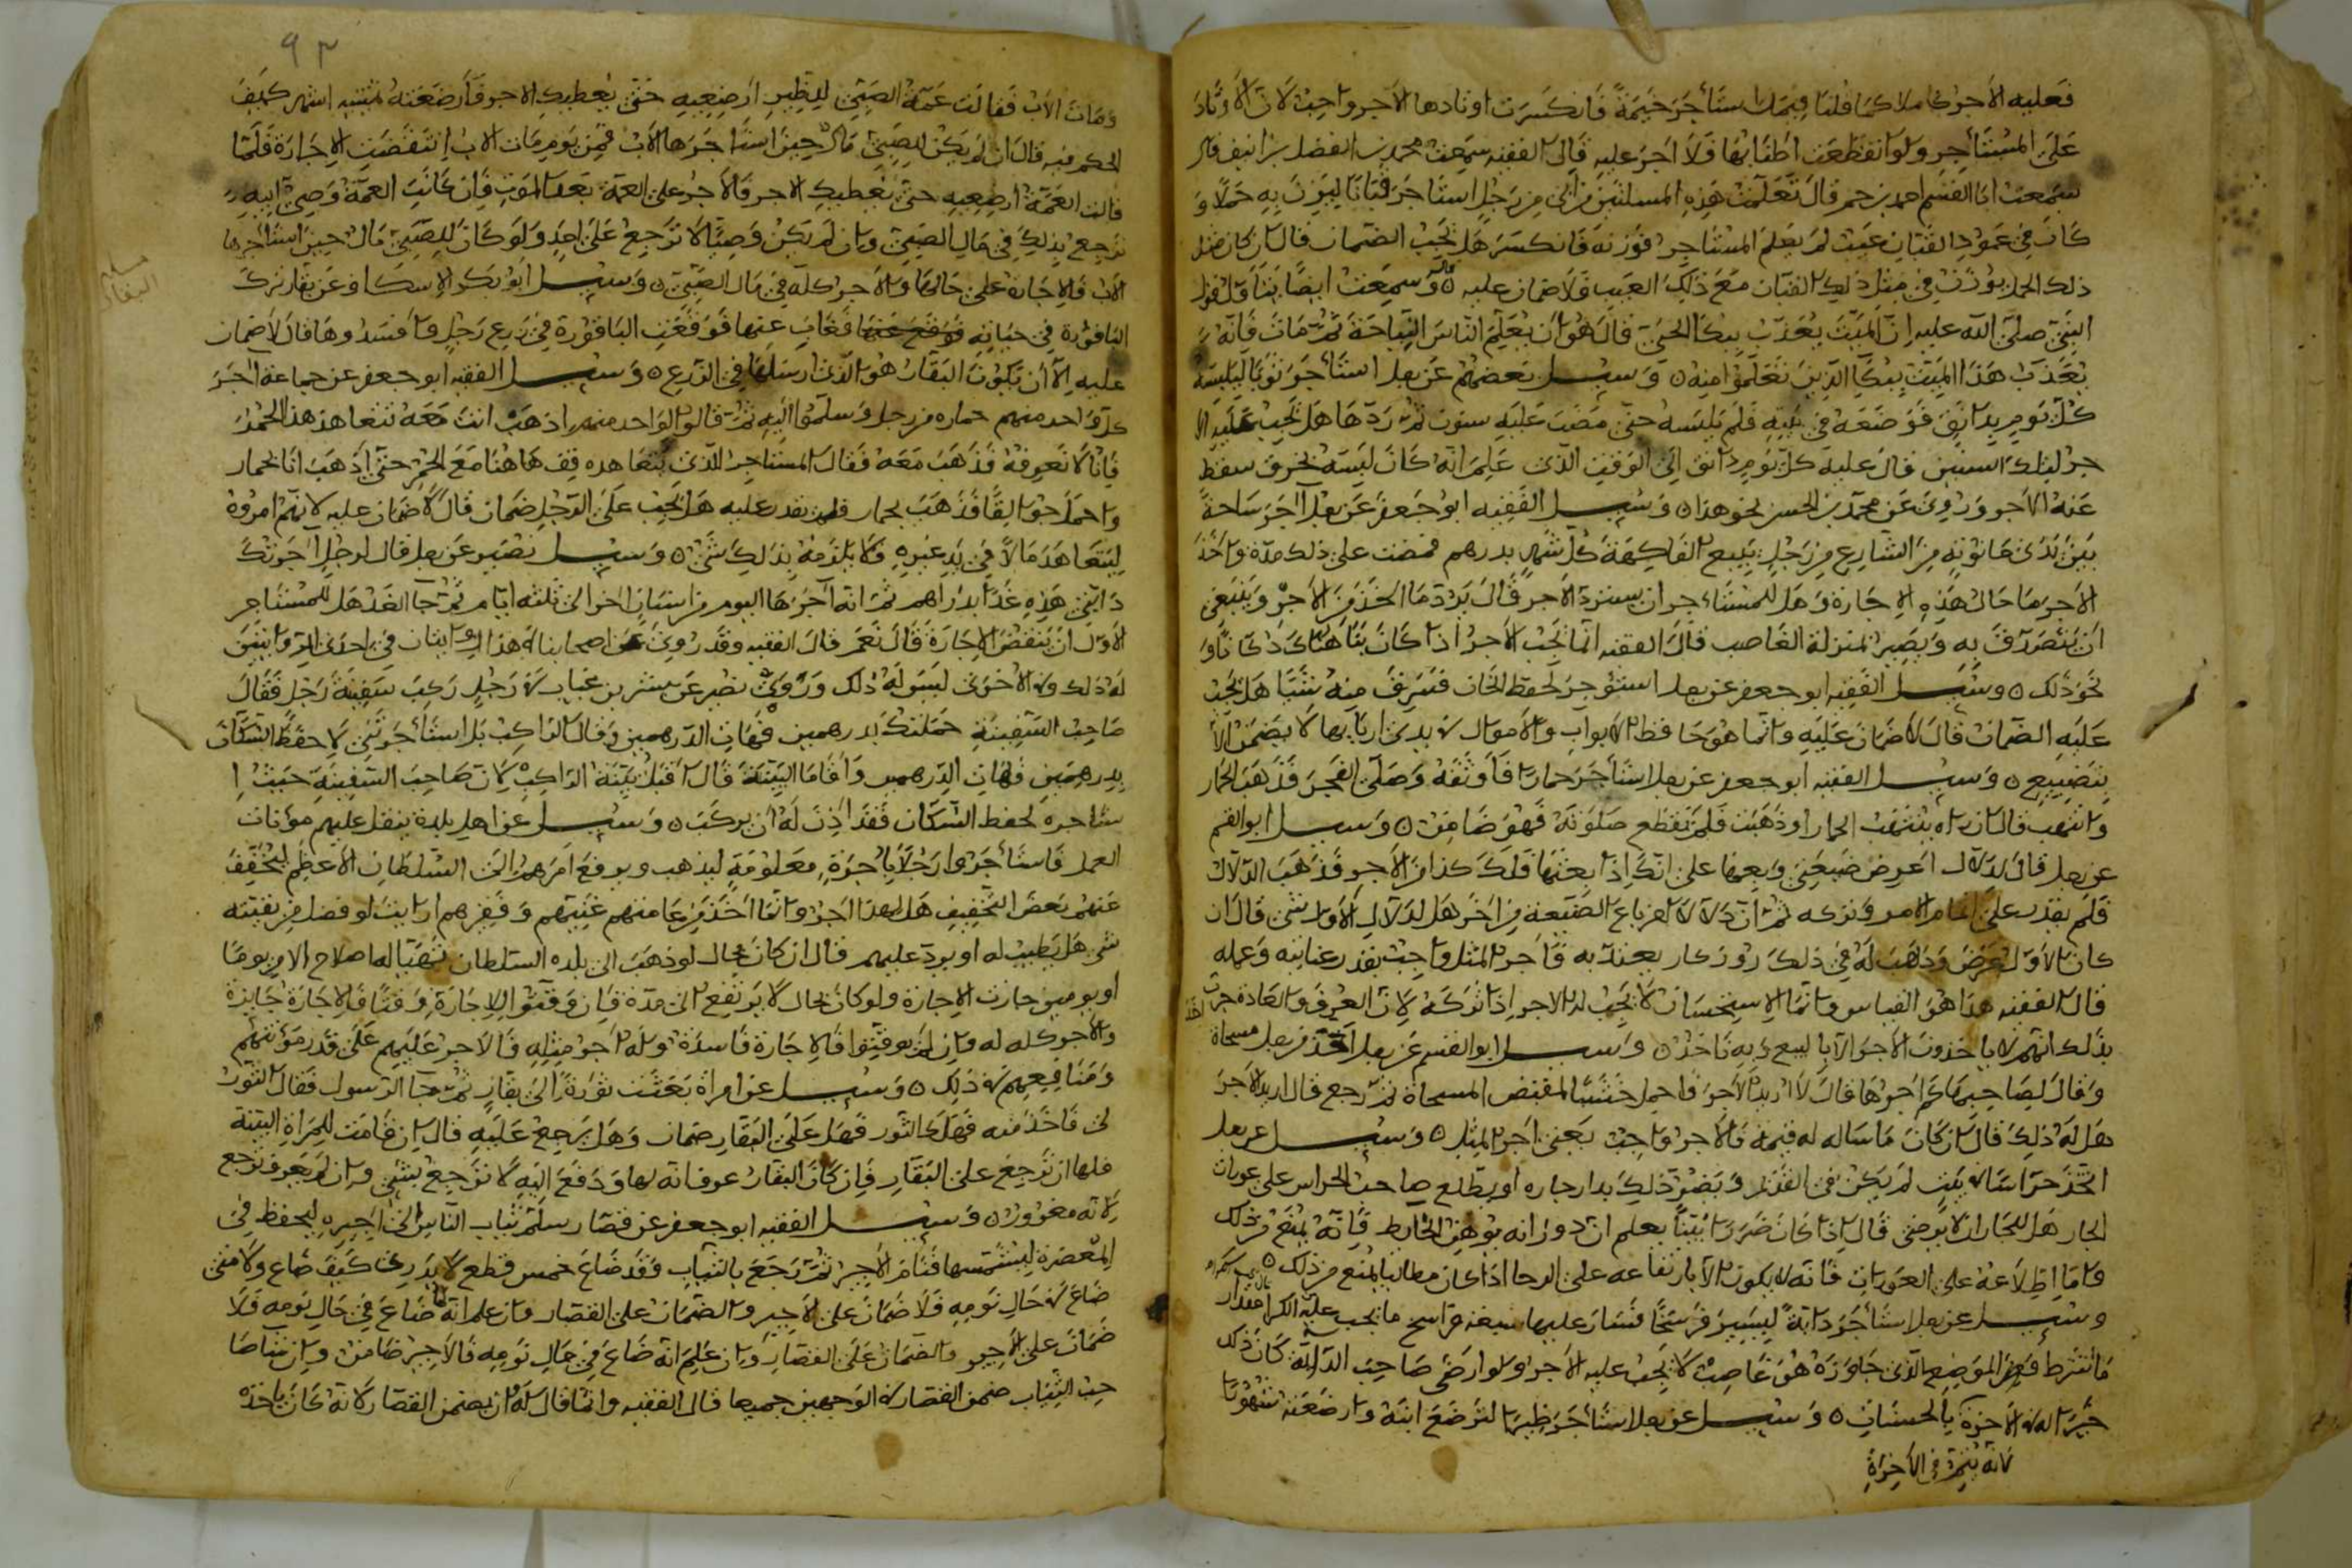 فعليه الأجر كاملا كما قلنا فيمن استأجر خيمة فانكسرت اوتادها الأجر واجب لأن الأوتاد
على المستأجر ولو انقطعت اطنابها فلا اجر عليه قال الفقيه سمعت محمد بن الفضل بن انيف قال
سمعت ابا القسم احمد بن حم قال تعلمت هذه المسئلتين من رجل استأجر قبانا ليزن به حملا و
كان في عمود القبان عيب لم يعلم المستأجر فوزنه فانكسر هل يجب الضمان قال ان كان مثل
ذلك الحمل يوزن في مثل ذلك القبان مع ذلك العيب فلا ضمان عليه وسمعت ايضا قول
النبي صلى الله عليه ان الميت يعذب ببكا الحي قال هو ان يعلم الناس النياحة ثم مات فانه
يعذب هذا الميت ببكا الذين تعلموا منه وسيل بعضهم عن رجل استأجر ثوبا ليلبسه
كل يوم بدانق فوضعه في بيته فلم يلبسه حتى مضت عليه سنون ثم ردها هل يجب عليه الا
جر لتلك السنين قال عليه كل يوم دانق الى الوقت الذي علم انه كان لبسه تخرق سقط
عنه الأجر وروي عن محمد بن الحسن نحو هذا وسيل الفقيه ابو جعفر عن رجل آجر ساحة
بين يدي حانوته من الشارع من رجل يبيع الفاكهة كل شهر بدرهم فمضت على ذلك مدة واخذ
الأجر ما حال هذه الاجارة وهل للمستأجر ان يسترد الأجر قال يرد ما اخذ من الأجر وينبغي
ان يتصدق به ويصير بمنزلة الغاصب قال الفقيه انما يجب الأجر اذا كان بنا هناك دكانا او
نحو ذلك وسيل الفقيه ابو جعفر عن رجل استؤجر لحفظ الخان فسرق منه شيا هل يجب
عليه الضمان قال لا ضمان عليه وانما هو حافظ الابواب والأموال في يدي اربابها لا يضمن الا
بتضييع وسيل الفقيه ابو جعفر عن رجل استأجر حمارا فأوثقه وصلى الفجر فذهب الحمار
وانتهب قال ان راه ينتهب الحمار او ذهبت فلم يقطع صلوته فهو ضامن وسيل ابو القسم
عن رجل قال لدلال اعرض ضيعتي وبعها على انك اذا بعتها فلك كذا من الأجر فذهب الدلال
فلم يقدر على اتمام الامر وتركه ثم ان دلالا اخر باع الضيعة من اخر هل لدلال الأول شي قال ان
كان الاول عرض وذهب له في ذلك روزكار يعتد به فأجر المثل واجب بقدر عنائه وعمله
قال الفقيه هذا هو القياس وانما الاستحسان لا يجب له الاجر اذا تركه لان العرف والعادة جرت
بذلك انهم لا ياخذون الأجر الا بالبيع وبه ناخذ وسيل ابو القسم عن رجل اخذ من رجل مسحاة
وقال لصاحبها كم اجرها قال لا اريد الأجر فاحمل خشبا لمقبض المسحاة ثم رجع قال اريد الأجر
هل له ذلك قال ان كان ما ساله له قيمة فالأجر واجب يعني اجر المثل وسيل عن رجل
اتخذ حراسا في بيت لم يكن في القديم ويضر ذلك بدار جاره او يطلع صاحب الحراس على عورات
الجار هل للجار ان لا يرضى قال اذا كان ضررا بينا يعلم ان دورانه يوهن الحايط فانه يمنع من ذلك
واما اطلاعه على العورات فانه لا يكون الا بارتفاعه على الرحا اذا كان مطالبا يمنع من ذلك
وسيل عن رجل استأجر دابة ليسير فرسخا فسار عليها سبعة فراسخ ما يجب عليه الكرا مقدار
ما اشترط فمن الموضع الذي جاوزه هو غاصب لا يجب عليه الأجر ولو ارضى صاحب الدابة كان ذلك
خيرا له في الأخرة بالحسنات وسيل عن رجل استأجر ظيرا لترضع ابنه وارضعته شهورا
لأنه ينجو في الأخرة
٩٣
ومات الأب فقالت عمة الصبي للظير ارضعيه حتى يعطيك الاجر فأرضعته ستة اشهر كيف
الحكم فيه قال ان لم يكن للصبي مال حين استأجرها الأب فمن يوم مات الاب انتقضت الاجارة فلما
قالت العمة ارضعيه حتى نعطيك الاجر فالأجر على العمة بعد الموت فان كانت العمة وصي ابيه
ترجع بذلك في مال الصبي وان لم يكن وصيا لا ترجع على احد ولو كان للصبي مال حين استأجرها
الأب فالاجارة على حالها والأجر كله في مال الصبي وسيل ابو بكر الاسكاف عن بقار ترك
مسئلة البقار
الباقورة في جبانة فغاب عنها فوقعت الباقورة في زرع رجل وافسدوها قال لا ضمان
عليه الا ان يكون البقار هو الذي ارسلها في الزرع وسيل الفقيه ابو جعفر عن جماعة اجر
كل واحد منهم حماره من رجل وسلموا اليه ثم قالوا لواحد منهم اذهب انت معه تتعاهد هذا الحمر
فانا لا نعرفه فذهب معه فقال المستاجر للذي يتعاهده قف هاهنا مع الحمر حتى اذهب انا بحمار
واحمل جوالقا فذهب بحمار فلم يقدر عليه هل يجب على الرجل ضمان قال لا ضمان عليه لانهم امروه
ليتعاهد مالا في يد غيره فلا يلزمه بذلك شي وسيل نصير عن رجل قال لرجل اجرتك
دابتي هذه غدا بدراهم ثم انه آجرها اليوم من انسان اخر الى ثلثة ايام ثم جا الغد هل للمستاجر
الأول ان ينقض الاجارة قال نعم قال الفقيه وقد روي عن اصحابنا في هذا روايتان في احدى الروايتين
له ذلك وفي الأخرى ليس له ذلك وروى نصير عن بشر بن غياث في رجل ركب سفينة رجل فقال
صاحب السفينة حملتك بدرهمين فهات الدرهمين وقال الراكب بل استأجرتني لاحفظ السكان
بدرهمين فهات الدرهمين وأقاما البينة قال اقبل بينة الراكب لان صاحب السفينة حيث ا
ستاجره لحفظ السكان فقد أذن له ان يركب وسيل عن اهل بلدة ينقل عليهم مؤنات
العمل فاستأجروا رجلا باجرة معلومة ليذهب ويرفع امرهم الى السلطان الأعظم لتخفف
عنهم بعض التخفيف هل لهذا اجر وانما اخذ من عامتهم غنيهم وفقيرهم ارايت لو فضل من نفقته
شي هل يطيب له او يرد عليهم قال ان كان بحال لو ذهب الى بلده السلطان يتهيا له اصلاح الامر يوما
او يومين جازت الاجارة ولو كان بحال لا يرتفع الى مدة فان وقتوا للاجارة وقتا فالاجارة جايزة
والأجر كله له وان لم يوقتوا فالاجارة فاسدة وله اجر مثله فالأجر عليهم على قدر مؤنتهم
ومنافعهم في ذلك وسيل عن امراة بعثت ثورا الى بقار ثم جا الرسول فقال الثور
لي فاخذ منه فهلك الثور فهل على البقار ضمان وهل يرجع عليه قال ان قامت للمراة البينة
فلها ان ترجع على البقار فان كان البقار عرف انه لها ودفع اليه لا ترجع بشي وان لم يعرف ترجع
لانه مغرور وسيل الفقيه ابو جعفر عن قصار سلم ثياب الناس الى اجيره ليحفظ في
المعصرة ليشمسها فنام الأجير ثم رجع بالثياب وقد ضاع خمس قطع لا يدرى كيف ضاع ولا متى
ضاع في حال نومه فلا ضمان على الأجير والضمان على القصار وان علم انه ضاع في حال نومه فلا
ضمان على الأجير والضمان على القصار وان علم انه ضاع في حال نومه فالأجير ضامن وان شا صا
حب الثياب ضمن القصار في الوجهين جميعا قال الفقيه وانما قال له ان يضمن القصار لانه كان ياخذه